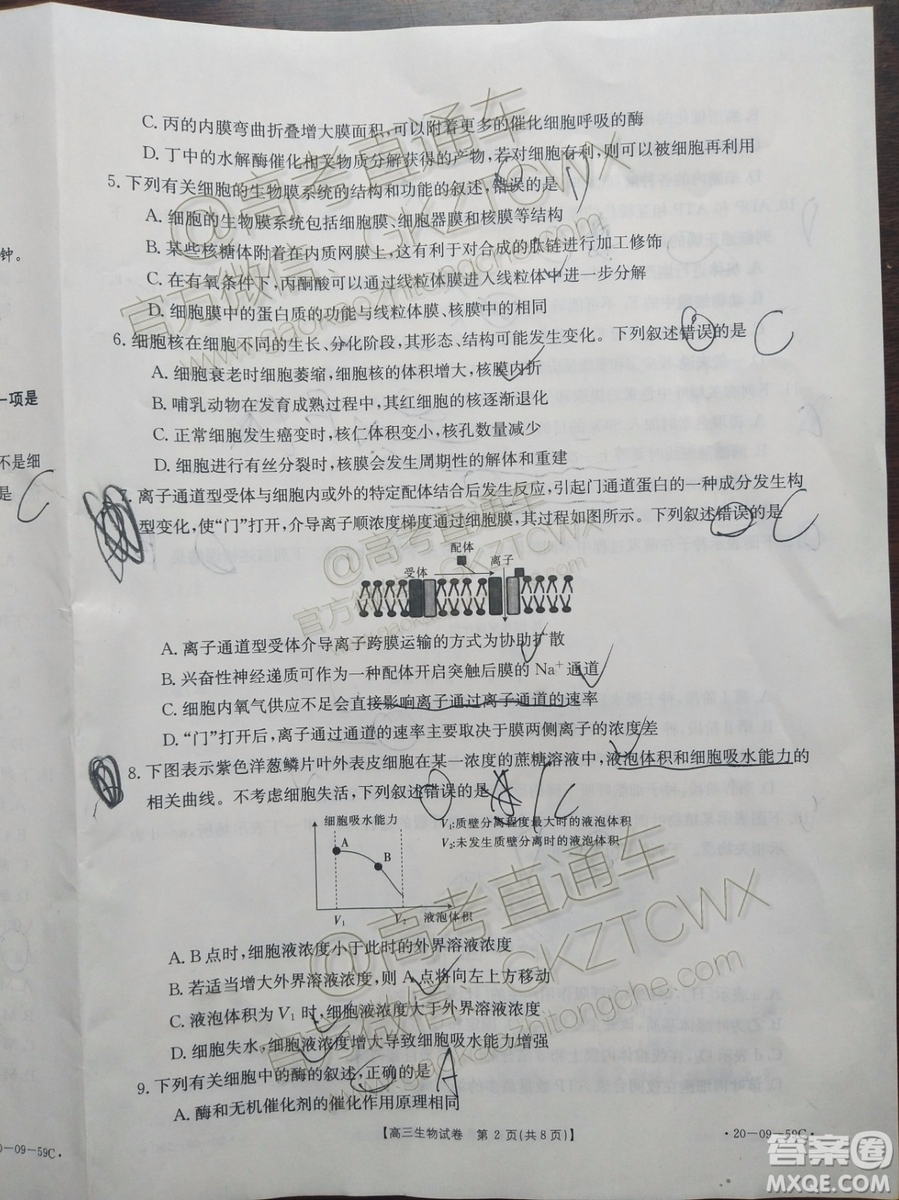 C. 丙的内膜弯曲折叠增大膜面积,可以附着更多的催化细胞呼吸的酶
D. 丁中的水解酶催化相关物质分解获得的产物,若对细胞有利,则可以被再利用
5. 下列有关细胞的生物膜系统的结构和功能的叙述,错误的是
A. 细胞的生物膜系统包括细胞膜、细胞器膜和核膜等结构
B. 某些核糖体附着在内质网膜上,这有利于对合成的肽链进行加工修饰
C. 在有氧条件下,丙酮酸可以通过线粒体膜进入线粒体中进一步分解
D. 细胞膜中的蛋白质的功能与线粒体膜、核膜中的相同
6. 细胞核在细胞不同的生长、分化阶段,其形态、结构可能发生变化。下列叙述错误的是 C
A. 细胞衰老时细胞萎缩,细胞核的体积增大,核膜内折
B. 哺乳动物在发育成熟过程中,其红细胞的核逐渐退化
C. 正常细胞发生癌变时,核仁体积变小,核孔数量减少
D. 细胞进行有丝分裂时,核膜会发生周期性的解体和重建
7. 离子通道型受体与细胞内或外的特定配体结合后发生反应,引起门通道蛋白的一种成分发生构
型变化,使“门”打开,介导离子顺浓度梯度通过细胞膜,其过程如图所示。下列叙述错误的是 C
配体
受体 离子
A. 离子通道型受体介导离子跨膜运输的方式为协助扩散
B. 兴奋性神经递质可作为一种配体开启突触后膜的 Na⁺ 通道
C. 细胞内氧气供应不足会直接影响离子通过离子通道的速率
D. “门”打开后,离子通道的速率主要取决于膜两侧离子的浓度差
8. 下图表示紫色洋葱鳞片叶外表皮细胞在某一浓度的蔗糖溶液中,液泡体积和细胞吸水能力的
相关曲线。不考虑细胞失活,下列叙述错误的是 C
细胞吸水能力
V₁:质壁分离程度最大时的液泡体积
V₂:未发生质壁分离时的液泡体积
A
B
V₁ V₂ 液泡体积
A. B 点时,细胞液浓度小于此时的外界溶液浓度
B. 若适当增大外界溶液浓度,则 A 点将向左上方移动
C. 液泡体积为 V₁ 时,细胞液浓度大于外界溶液浓度
D. 细胞失水,细胞液浓度增大导致细胞吸水能力增强
9. 下列有关细胞中的酶的叙述,正确的是 A
A. 酶和无机催化剂的催化作用原理相同
【高三生物试卷 第 2 页(共 8 页)】
·20-09-59C·
钟。
一项是
不是细
是 C
0-09-59C·
@高考直通车
官方微信:GKZTCWX
www.gaokaozhitongche.com
@高考直通车
官方微信:GKZTCWX
@高考直通车
官方微信:GKZTCWX
www.gaokaozhitongche.com
答案圈
MXQE.COM